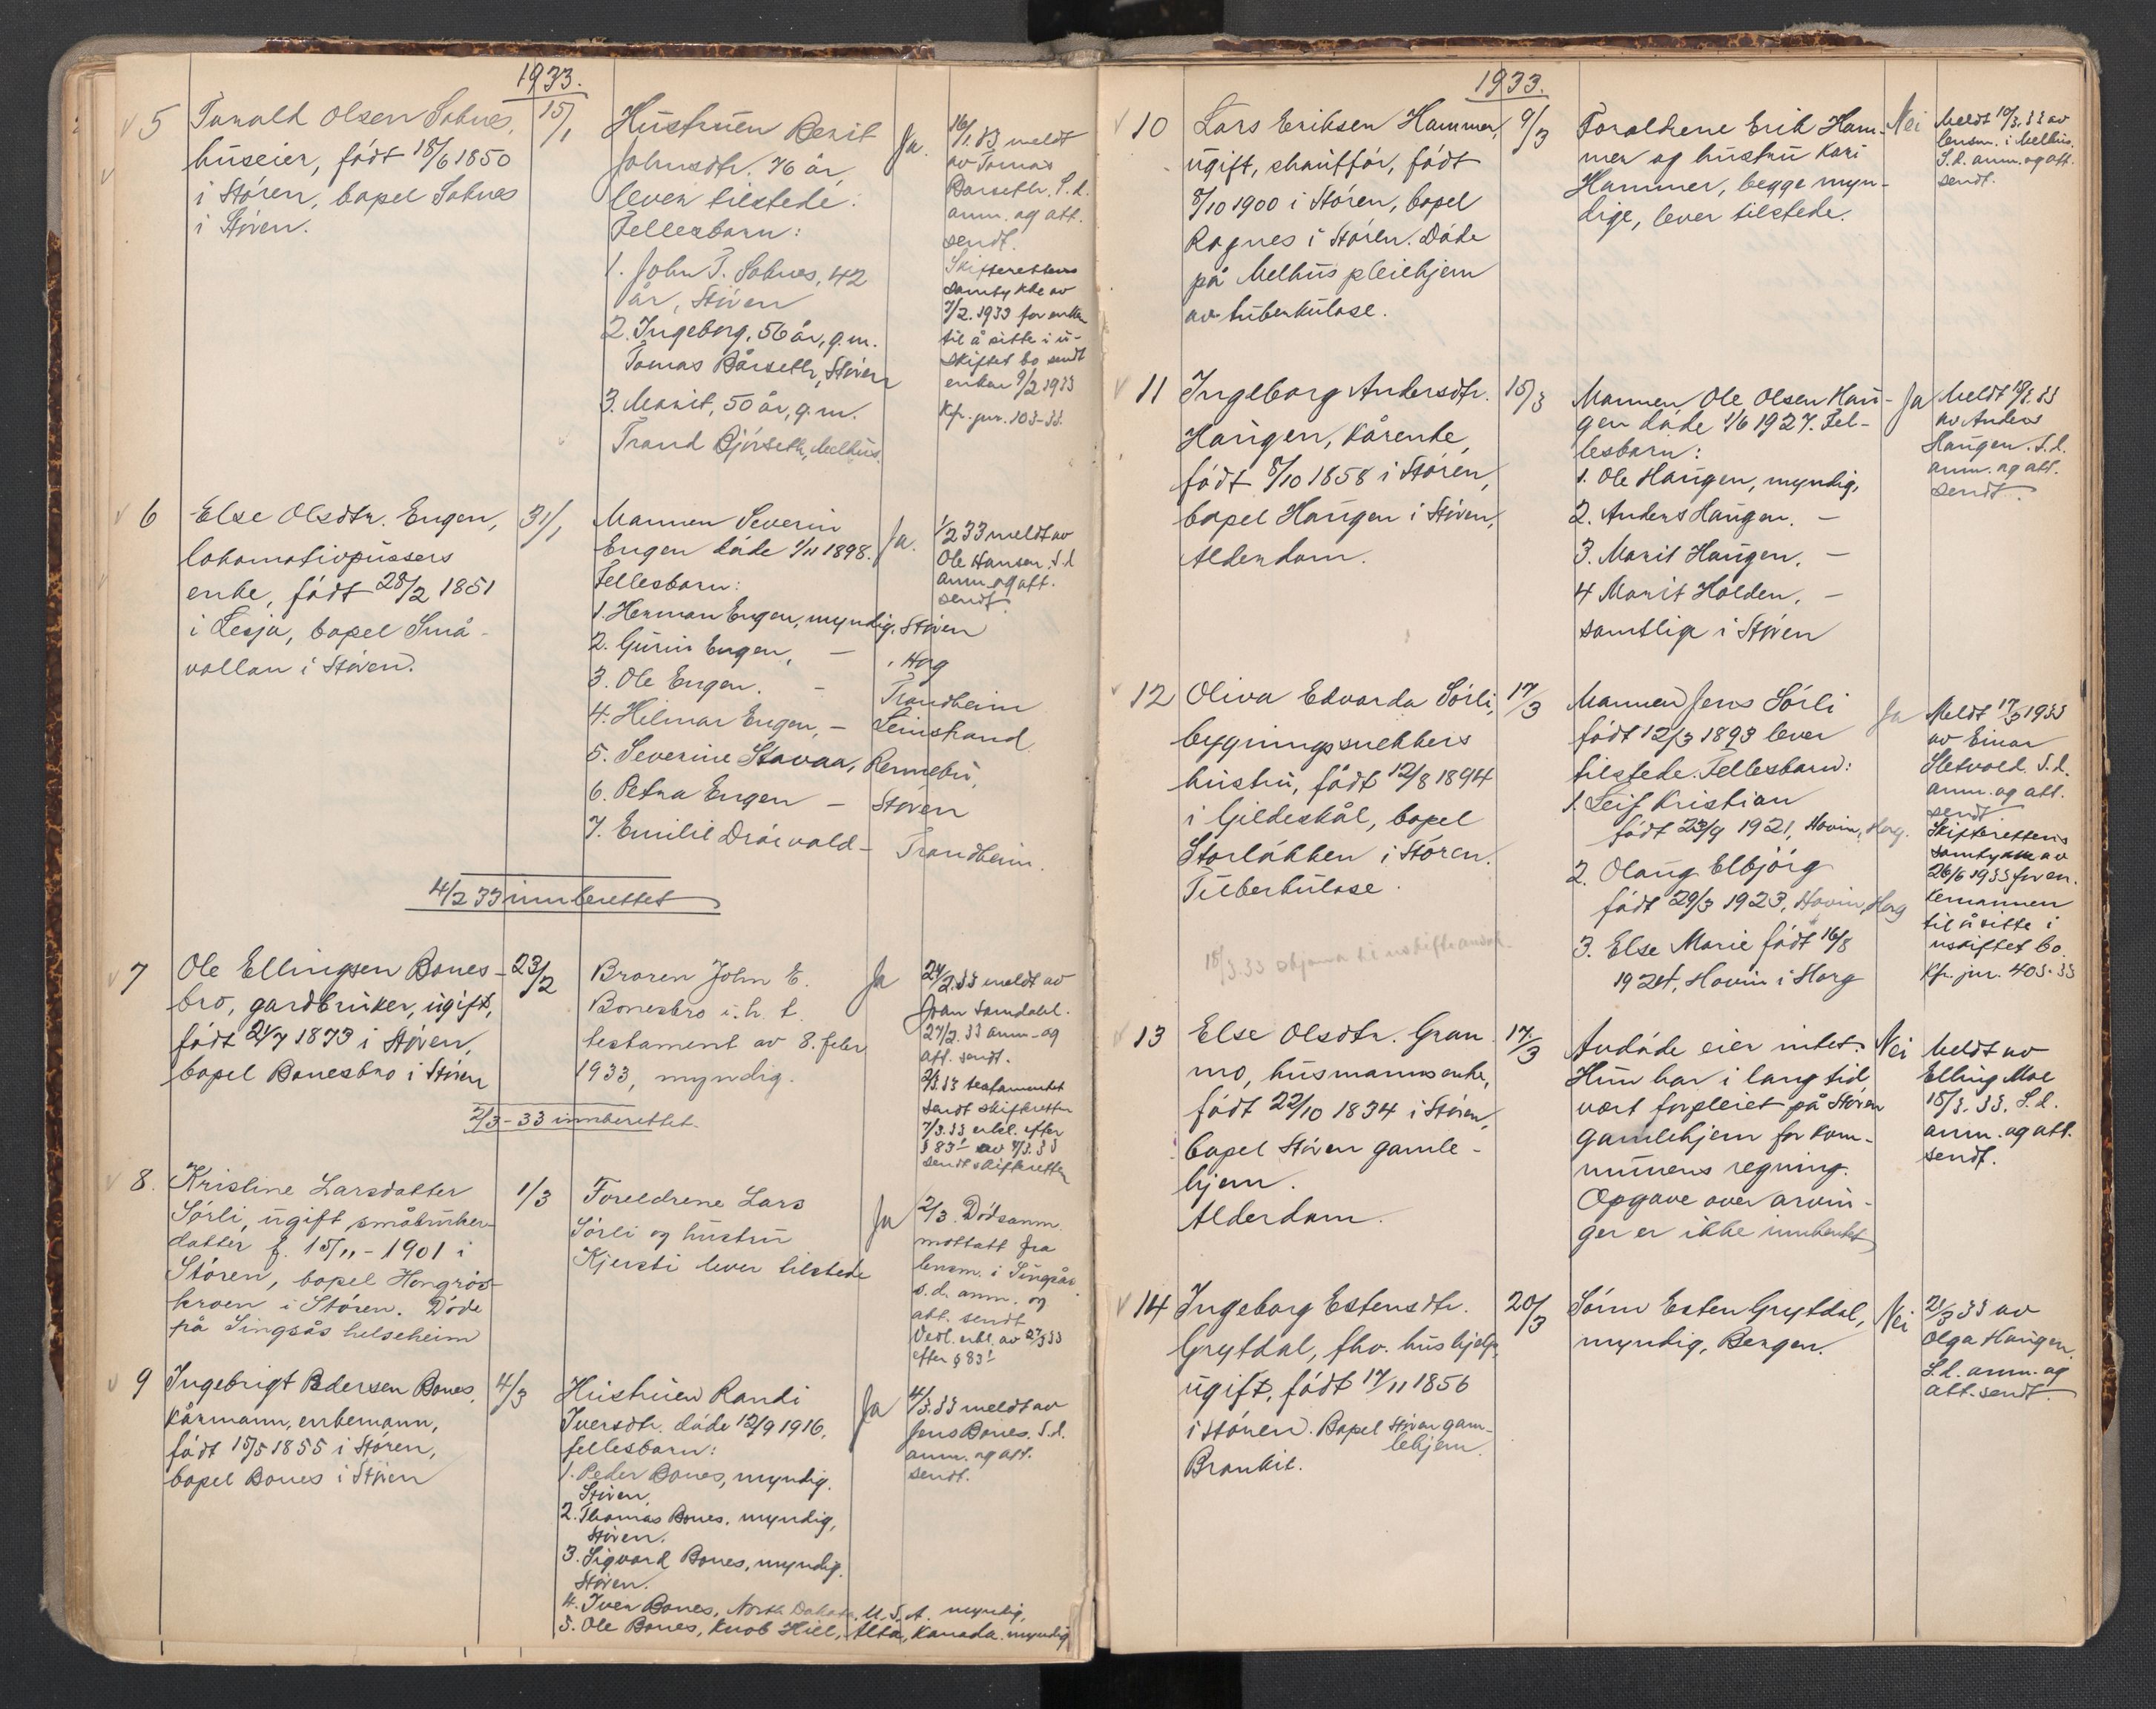 1933.
5 Tarald Olsen Soknes,
huseier, födt 18/6 1850
i Stören, bopel Soknes
i Stören.
15/1
Hustruen Berit
Johnsdtr. 76 år,
lever tilstede.
Fellesbarn:
1. John T. Soknes, 42
år, Stören
2. Ingeborg, 56 år, g.m.
Tomas Bårseth, Stören
3. Marit, 50 år, g.m.
Trond Björseth, Melhus.
Ja.
16/1.33 meldt
av Tomas
Barseth. S.d.
anm. og att.
sendt.
Skifterettens
samtykke av
7/2.1933 for enken
til å sitte i u-
skiftet bo sendt
enken 9/2 1933
Kfr. jur. 103-33.
6 Else Olsdtr. Engen,
lokomotivpussers
enke, födt 28/2 1851
i Lesja, bopel Små-
vollan i Stören.
31/1
Mannen Severin
Engen döde 1/11 1898.
Fellesbarn:
1. Herman Engen, myndig, Stören
2. Guru Engen, — , Horg
3. Ole Engen. - Trondheim
4. Hilmar Engen, — Leinstrand
5. Severine Stavaa, Rennebu,
6. Petra Engen — Stören
7. Emilie Dråivold — Trondheim.
Ja.
1/2 33 meldt av
Ole Hansen. S.d
anm. og att.
sendt.
4/2 33 innberettet
7 Ole Ellingsen Bones-
bro, gardbruker, ugift,
födt 21/7 1873 i Stören,
bopel Bonesbro i Stören
23/2
Broren John E.
Bonesbro i. h. t.
testament av 8. febr
1933, myndig.
Ja
24/2.33 meldt av
Joan Samdahl.
27/2.33 anm- og
att. sendt.
2/3 33 testamentet
sendt skifteretten
7/3.33 erkl. efter
§ 83¹ av 7/3.33
sendt skifteretten
2/3-33 innberettet.
8. Kristine Larsdatter
Sörli, ugift småbruker-
datter f. 15/11-1901 i
Stören, bopel Hongrös-
kroen i Stören. Döde
på Singsås helseheim
1/3
Foreldrene Lars
Sörli og hustru
Kjersti lever tilstede
Ja
2/3. Dödsanm.
mottatt fra
lensm. i Singsås.
s.d. anm. og
att. sendt
Vedl. erkl. av 27/3 33
efter § 83¹
9 Ingebrigt Pedersen Bones,
kårmann, enkemann,
födt 15/5 1855 i Stören,
bopel Bones i Stören
4/3
Hustruen Randi
Iversdtr. döde 12/9 1916,
fellesbarn:
1. Peder Bones, myndig.
Stören,
2. Thomas Bones, myndig,
Stören.
3. Sigvard Bones, myndig.
Stören.
4. Iver Bones, North Dakota, U.S.A. myndig,
5. Ole Bones, Knob Hill, Alta, Kanada. myndig
Ja
4/3.33 meldt av
Jens Bones. S.d.
anm. og att.
sendt.
1933.
10 Lars Eriksen Hammer,
ugift, chaufför, födt
8/10 1900 i Stören, bopel
Rognes i Stören. Döde
på Melhus pleiehjem
av tuberkulose.
9/3
Foreldrene Erik Ham-
mer og hustru Kari
Hammer, begge myn-
dige, lever tilstede.
Nei
Meldt 10/3.33 av
lensm. i Melhus.
S.d. anm. og att.
sendt.
11 Ingeborg Andersdtr.
Haugen, kårenke,
födt 8/10 1858 i Stören,
bopel Haugen i Stören,
Alderdom.
15/3
Mannen Ole Olsen Hau-
gen döde 1/6 1927. Fel-
lesbarn:
1. Ole Haugen, myndig,
2. Anders Haugen. —
3. Marit Haugen. —
4 Marit Holden. —
samtlige i Stören
Ja
Meldt 18/3.33
av Anders
Haugen. S.d.
anm. og att.
sendt.
12 Oliva Edvarda Sörli,
bygningssnekkers
hustru, födt 12/8 1894
i Gildeskål, bopel
Storlökken i Stören.
Tuberkulose.
17/3
Mannen Jens Sörli
födt 12/3 1893 lever
tilstede. Fellesbarn:
1. Leif Kristian
födt 23/9 1921, Hovin, Horg.
2. Olaug Elbjörg
födt 29/3 1923, Hovin, Horg
3. Else Marie födt 16/8
1924, Hovin i Horg
Ja
Meldt 17/3 1933
av Einar
Sletvold. S.d.
anm. og att.
sendt
Skifterettens
samtykke av
26/6 1933 for en-
kemannen
til å sitte i
uskiftet bo.
Kfr. jur. 403-33
18/3.33 skjema til
13 Else Olsdtr. Gran-
mo, husmannsenke,
födt 22/10 1834 i Stören,
bopel Stören gamle-
hjem.
Alderdom.
17/3
Avdöde eier intet.
Hun har i lang tid
vært forpleiet på Stören
gamlehjem for kom-
munens regning.
Opgave over arvin-
ger er ikke innhentet
Nei
Meldt av
Elling Moe
18/3.33. S.d.
anm. og att.
sendt.
14 Ingeborg Estensdtr.
Grytdal, fhv. hushjelp,
ugift, födt 17/11 1856
i Stören. Bopel Stören gam-
lehjem.
Bronkit.
20/3
Sönn Esten Grytdal,
myndig, Bergen.
Nei
21/3 33 av
Olga Haugen.
S.d. anm. og
att. sendt